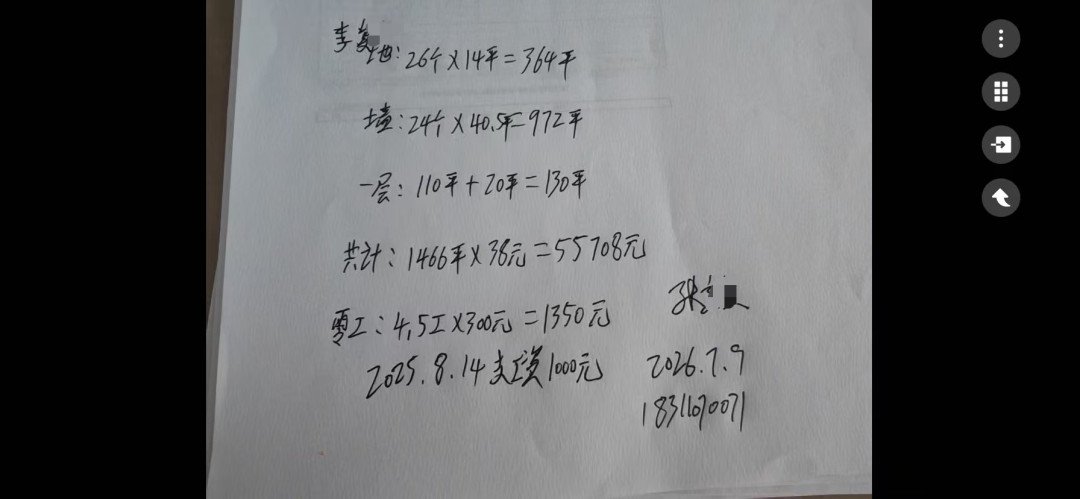 李
地:26个×14平=364平
墙:24个×40.5平=972平
一层:110平+20平=130平
共计:1466平×38元=55708元
零工:4.5工×300元=1350元
2025.8.14支 1000元
张
2026.7.9
18311670071